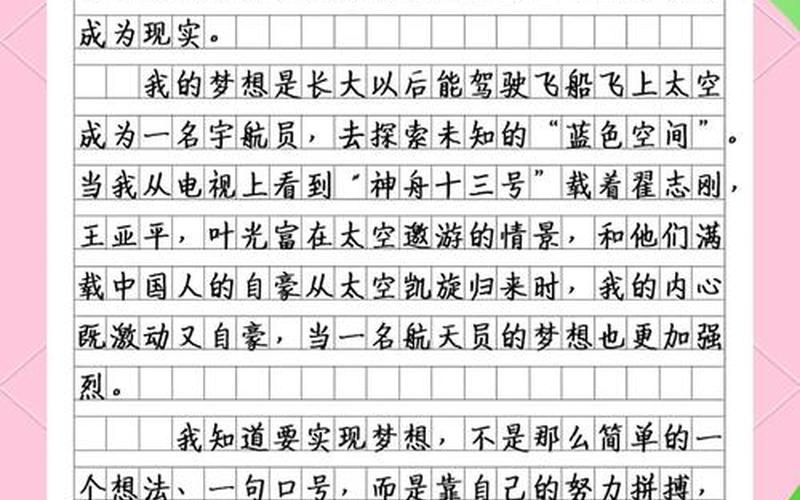 成为现实。
我的梦想是长大以后能驾驶飞船飞上太空
成为一名宇航员，去探索未知的“蓝色空间”。
当我从电视上看到“神舟十三号”载着翟志刚，
王亚平，叶光富在太空遨游的情景，和他们满
载中国人的自豪从太空凯旋归来时，我的内心
既激动又自豪，当一名航天员的梦想也更加强
烈。
我知道要实现梦想，不是那么简单的一
个想法、一句口号，而是靠自己的努力拼搏，